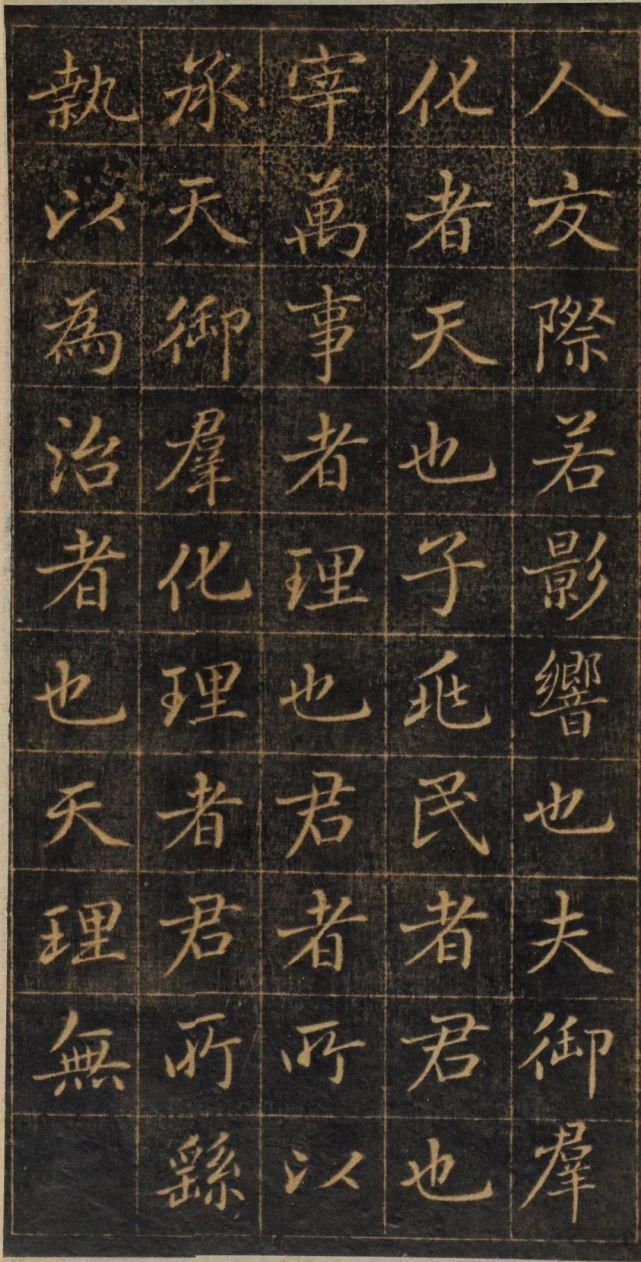 人交際若影響也夫御羣
化者天也子兆民者君也
宰萬事者理也君者所以
承天御羣化理者君所繇
執以為治者也天理無